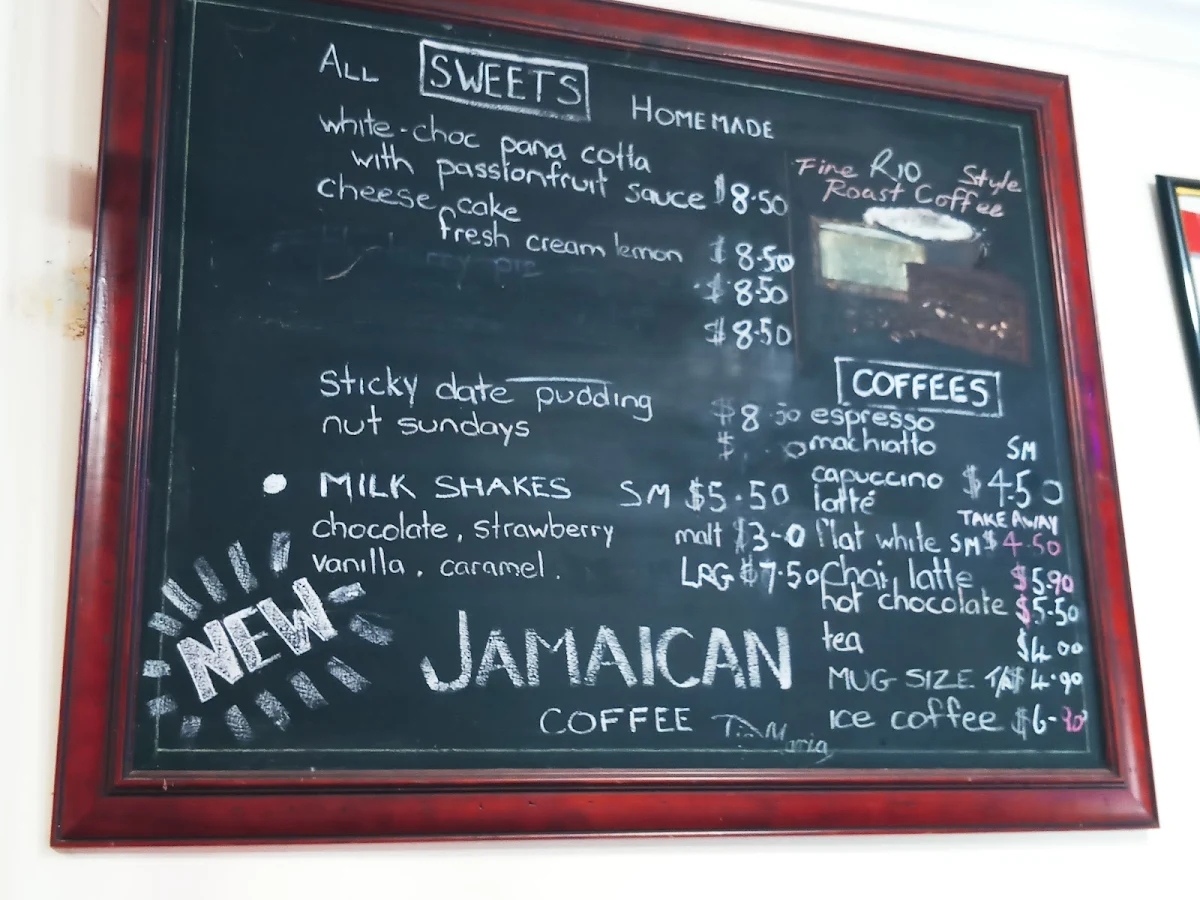 ALL SWEETS HOMEMADE
white-choc pana cotta
with passionfruit sauce $8.50
cheese cake
fresh cream lemon $8.50
$8.50
$8.50
Sticky date pudding $8.50
nut sundays
• MILK SHAKES SM $5.50
chocolate, strawberry malt $3-0
vanilla, caramel. LRG $7.50
NEW
JAMAICAN
COFFEE Tia Maria
Fine Rio Style
Roast Coffee
COFFEES
espresso
machiatto SM
capuccino $4.50
latté
TAKE AWAY
flat white SM $4.50
Chai latte $5.90
hot chocolate $5.50
tea $4.00
MUG SIZE TA $4.90
Ice coffee $6-90